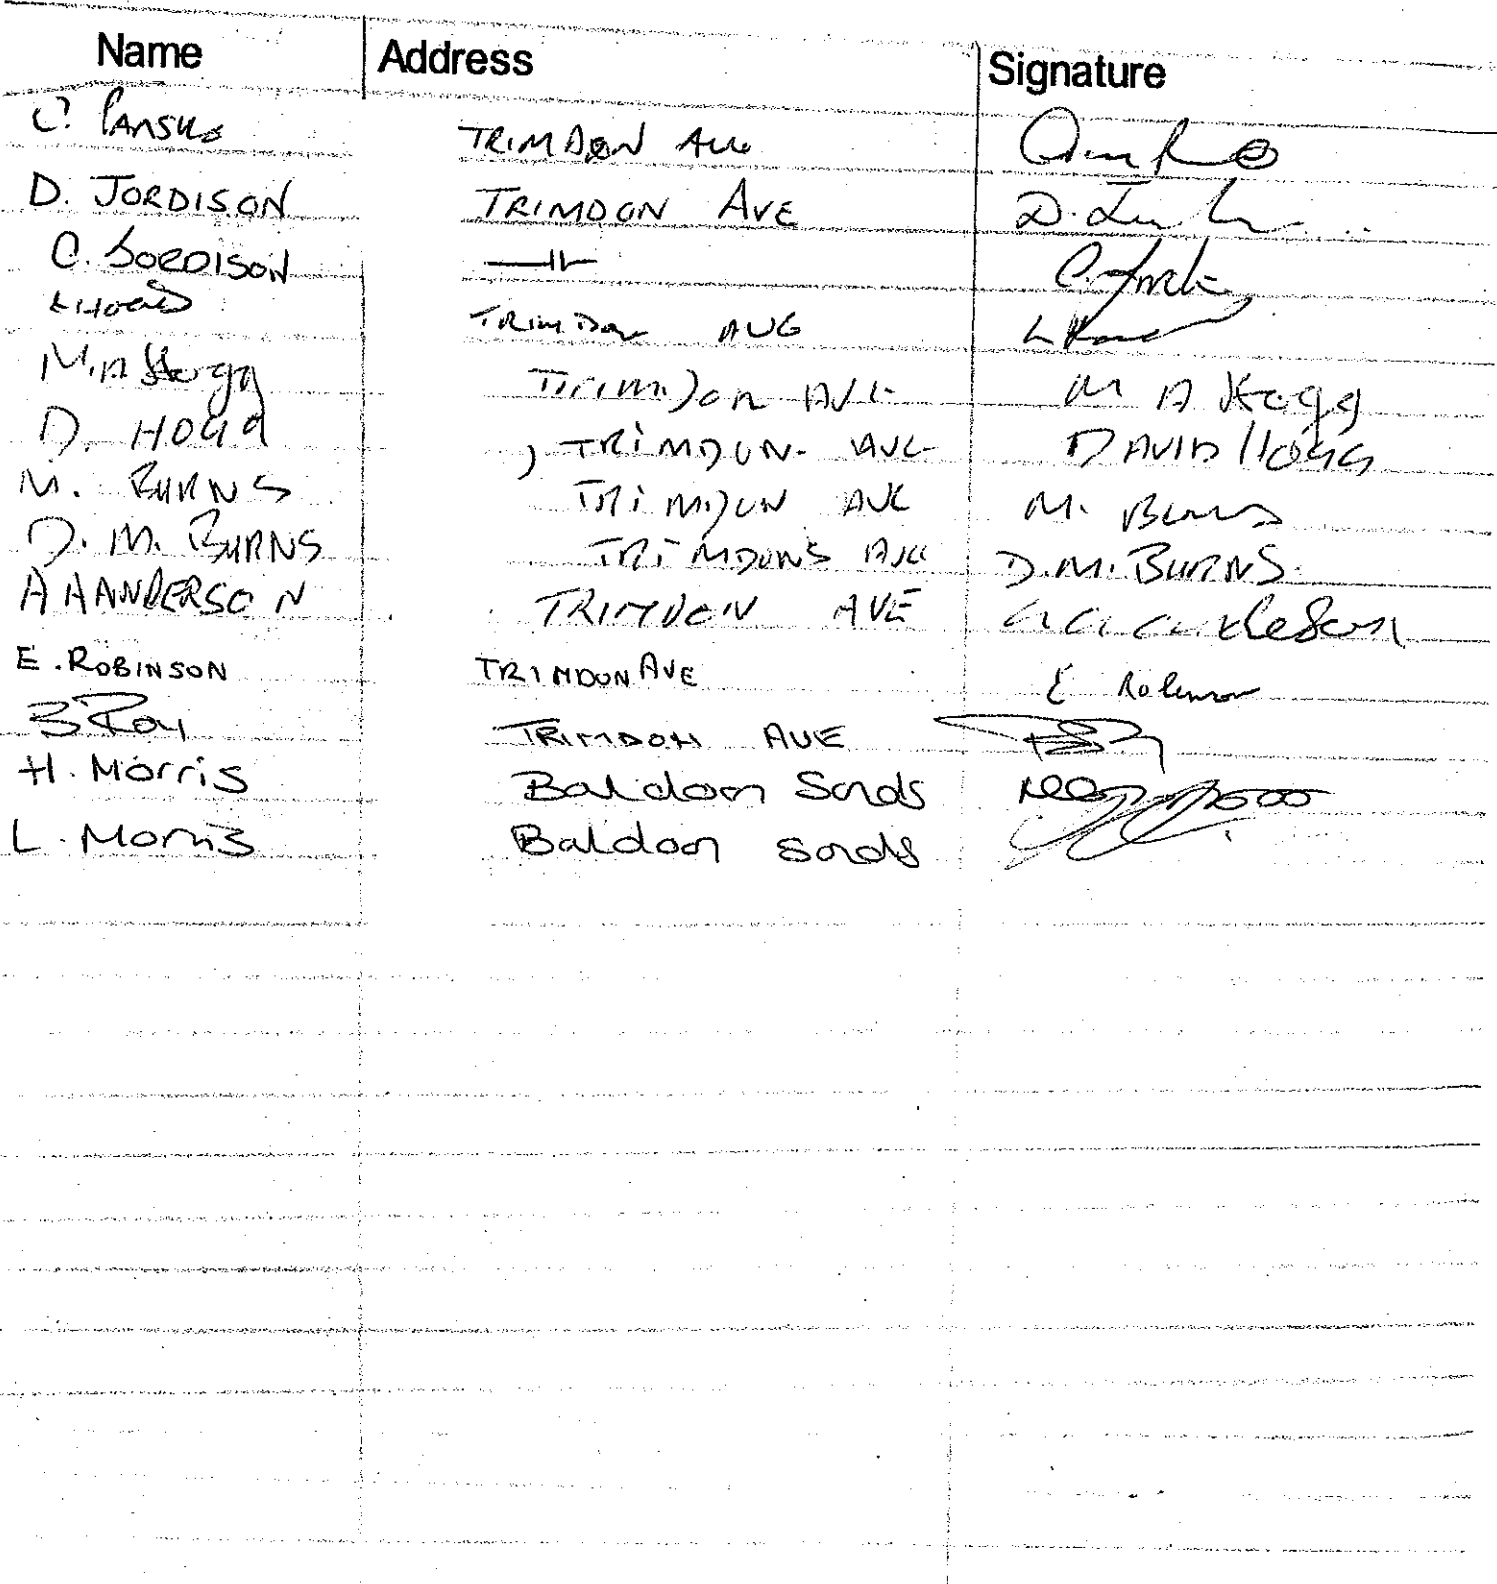 Name Address Signature
C. TRIMDON AVE
D. JORDISON TRIMDON AVE D.
C. JORDISON —11— C.
TRIMDON AVE L
M.A Hogg TRIMDON AVE M A Hogg
D. HOGG , TRIMDON. AVE DAVID HOGG
M. BURNS TRIMDON AVE M. Burns
D. M. BURNS TRIMDONS AVE D.M. BURNS.
A A ANDERSON TRIMDON AVE a a anderson
E. ROBINSON TRIMDON AVE E Robinson
B Roy TRIMDON AVE
H. Morris Baldoon Sands
L. Morris Baldoon Sands